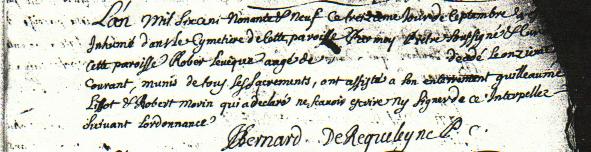 L'an mil six cens nonante & neuf ce treizieme jour de septembre a esté
Inhumé dans le Cymetiere de cette paroisse par moy Prêtre soussigné & Curé
cette paroisse Rober leveque angé de decedé le onzieme
Courant, munis de tous les sacrements, ont assisté a son enterrement guilleaume
Liffot & Robert Morin qui a declaré ne scavoir escrire ny signer de ce Interpellez
suivant lordonnance
Bernard DeRequeleyne P. C.